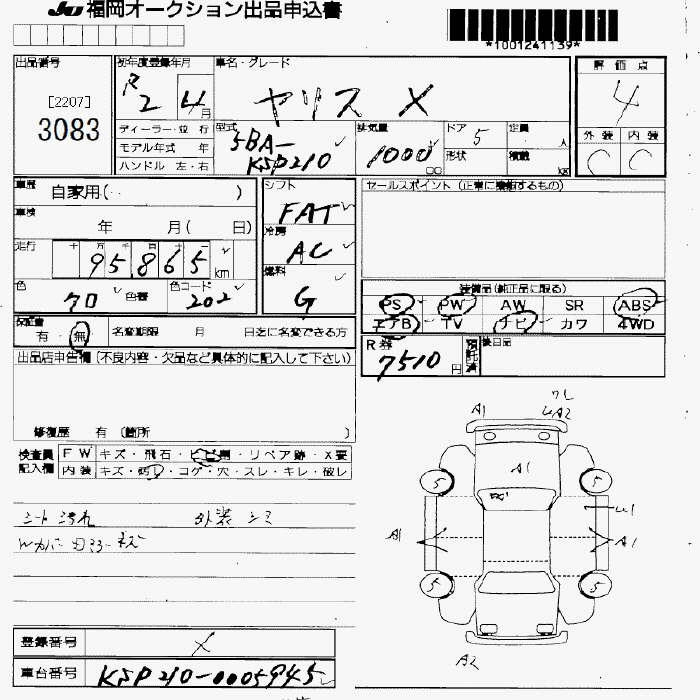 JU 福岡オークション出品申込書
*1001241139*
出品番号
[2207]
3083
初年度登録年月
R2 4月
車名・グレード
ヤリス X
評価点
4
外装 内装
C C
ディーラー・並行
モデル年式 年
ハンドル 左・右
型式
5BA-
KSP210
排気量
1000
cc
ドア
5
形状
定員
人
積載
kg
車歴
自家用( )
車検
年 月( 日)
走行
十万千百十一
95865
km
色
クロ
色替
色コード
202
シフト
FAT
冷房
AC
燃料
G
セールスポイント(正常に機能するもの)
装備品(純正品に限る)
PS PW AW SR ABS
エアB TV ナビ カワ 4WD
保証書
有・無
名変期限 月 日迄に名変できる方
R券
7510
円
預託済
後日品
出品店申告欄(不良内容・欠品など具体的に記入して下さい)
修復歴 有 〔箇所 〕
検査員
記入欄
FW キズ・飛石・ヒビ割・リペア跡・X要
内装 キズ・汚レ・コゲ・穴・スレ・キレ・破レ
シート汚れ 外装シミ
A1
A2
A1
5 5
A1
A1
5 5
A2
登録番号
X
車台番号
KSP210-0005945